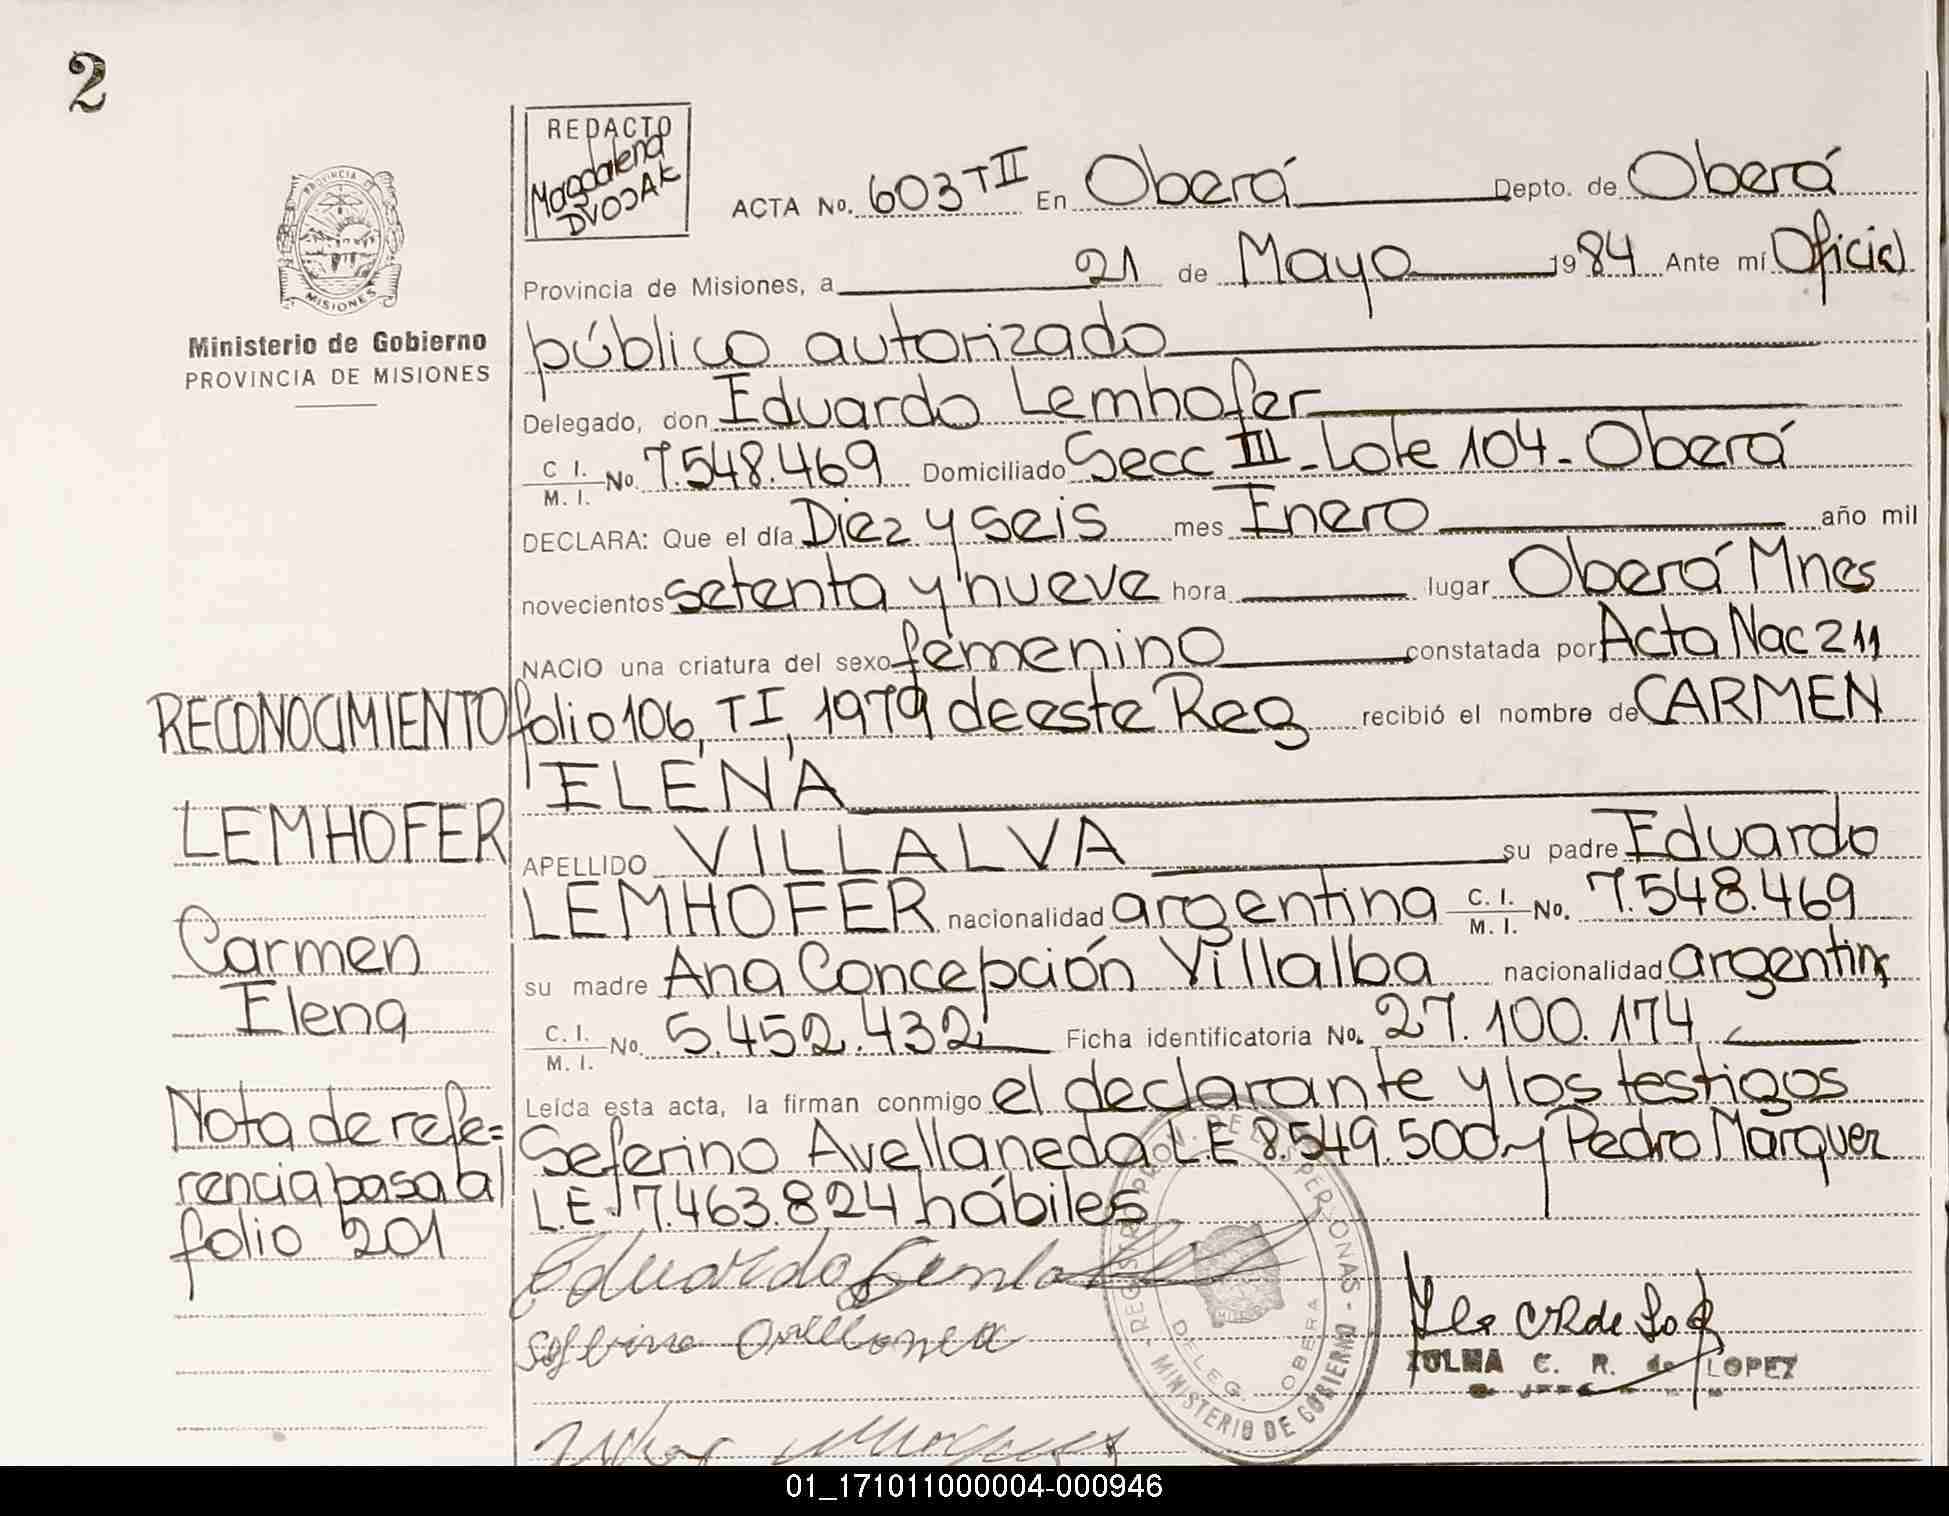 2
PROVINCIA DE
MISIONES
Ministerio de Gobierno
PROVINCIA DE MISIONES
REDACTO
Magdalena
DVOJAK
ACTA No. 603 T II En Oberá Depto. de Oberá
Provincia de Misiones, a 21 de Mayo 1984 Ante mí Oficial
público autorizado
Delegado, don Eduardo Lemhofer
C I. / M. I. No. 7.548.469 Domiciliado Secc III - Lote 104 - Oberá
DECLARA: Que el día Diez y seis mes Enero año mil
novecientos setenta y nueve hora lugar Oberá Mnes
NACIO una criatura del sexo femenino constatada por Acta Nac 211
RECONOCIMIENTO folio 106, T I, 1979 de este Reg recibió el nombre de CARMEN
ELENA
LEMHOFER
APELLIDO VILLALVA su padre Eduardo
LEMHOFER nacionalidad argentina C. I. / M. I. No. 7.548.469
Carmen
su madre Ana Concepción Villalba nacionalidad argentina
Elena
C. I. / M. I. No. 5.452.432 Ficha identificatoria No. 27.100.174
Leída esta acta, la firman conmigo el declarante y los testigos
Nota de refe=
Seferino Avellaneda L.E 8.549.500 y Pedro Márquez
rencia pasa al
L.E. 7.463.824 hábiles
folio 201
Eduardo
REGISTRO DE LAS PERSONAS - MINISTERIO DE GOBIERNO -
DELEG. OBERA
ZULMA C. R. de LOPEZ
01_171011000004-000946